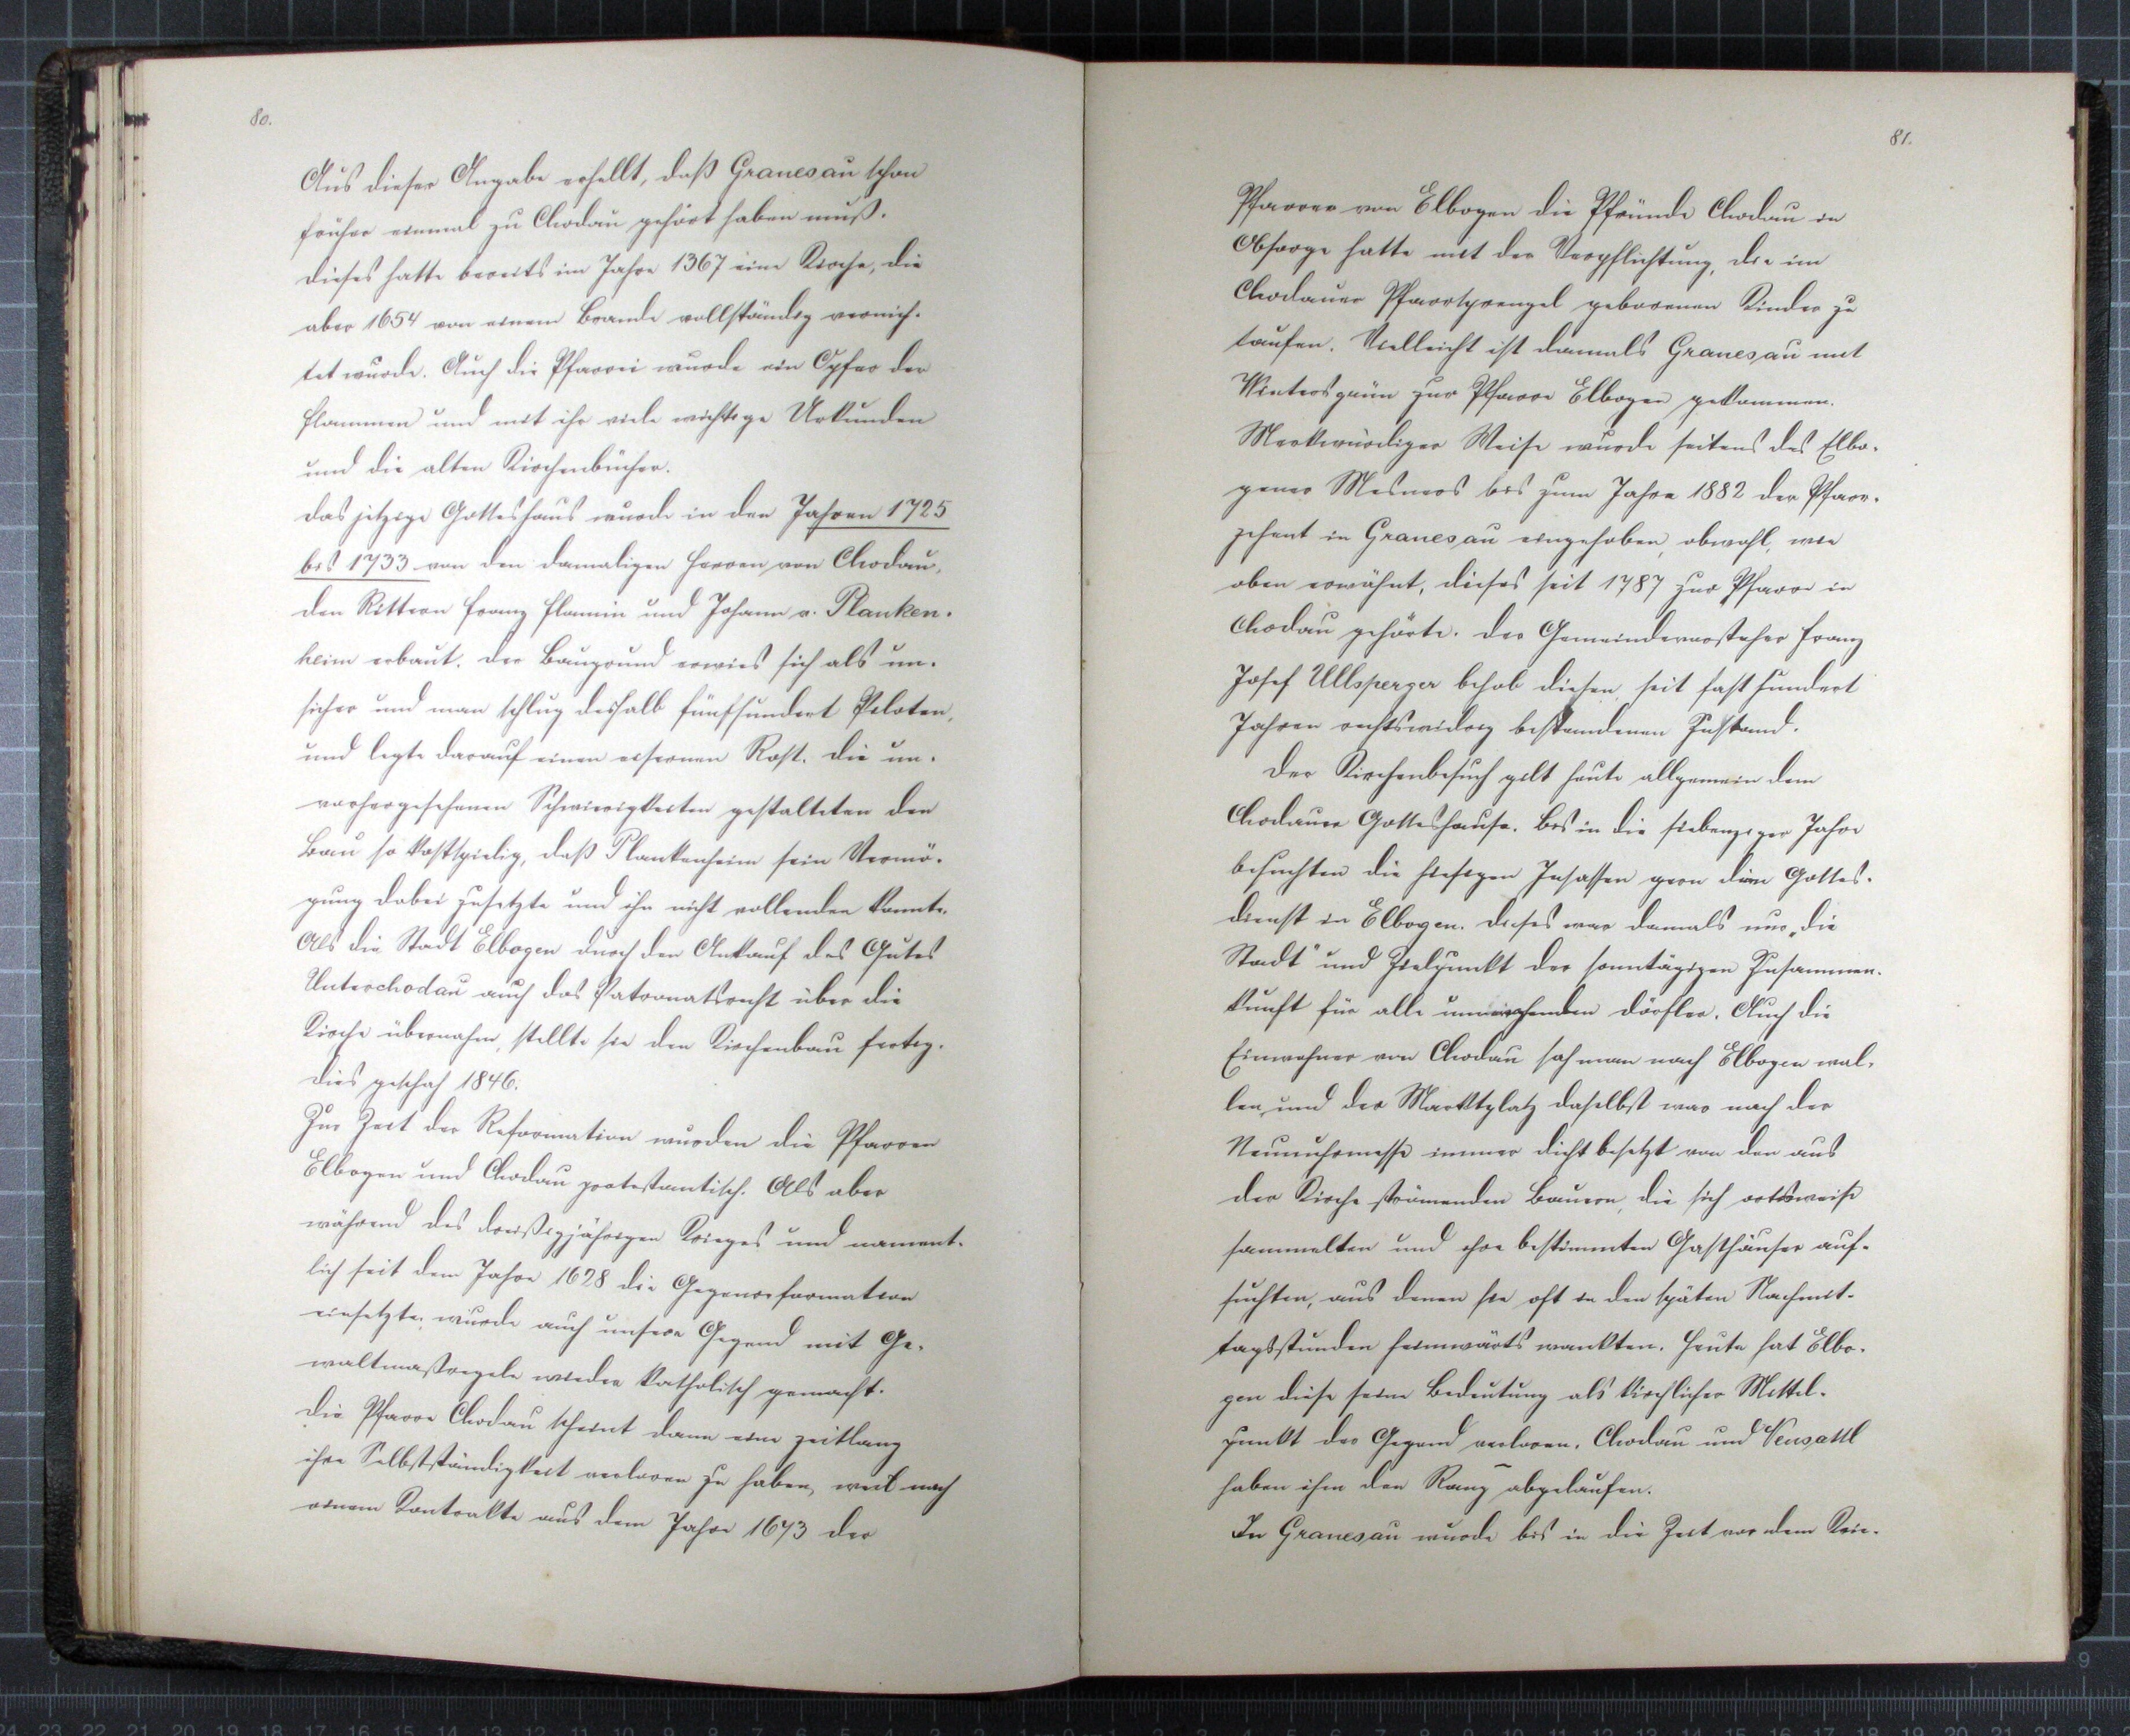 80.
Aus dieser Angabe erhellt, daß Granesau schon
früher einmal zu Chodau gehört haben muß.
Dieses hatte bereits im Jahre 1367 eine Kirche, die
aber 1654 von einem Brande vollständig vernich-
tet wurde. Auch die Pfarrei wurde ein Opfer der
Flammen und mit ihr viele wichtige Urkunden
und die alten Kirchenbücher.
Das jetzige Gotteshaus wurde in den Jahren 1725
bis 1733 von den damaligen Herren von Chodau,
den Rittern Franz Flamin und Johann v. Planken-
heim erbaut. Der Baugrund erwies sich als un-
sicher und man schlug deshalb fünfhundert Piloten,
und legte darauf einen eisernen Rost. Die un-
vorhergesehenen Schwierigkeiten gestalteten den
Bau so kostspielig, daß Plankenheim sein Vermö-
gung dabei zusetzte und ihn nicht vollenden konnte.
Als die Stadt Elbogen durch den Ankauf des Gutes
Unterchodau auch das Patronatsrecht über die
Kirche übernahm, stellte sie den Kirchenbau fertig.
Dies geschah 1846.
Zur Zeit der Reformation wurden die Pfarren
Elbogen und Chodau protestantisch. Als aber
während des dreißigjährigen Krieges und nament-
lich seit dem Jahre 1628 die Gegenreformation
einsetzte, wurde auch unsere Gegend mit Ge-
waltmaßregeln wieder katholisch gemacht.
Die Pfarre Chodau scheint dann eine zeitlang
ihre Selbstständigkeit verloren zu haben, weil nach
einem Kontrakte aus dem Jahre 1673 der
81.
Pfarrer von Elbogen die Pfründe Chodau in
Obsorge hatte mit der Verpflichtung, die im
Chodauer Pfarrsprengel geborenen Kinder zu
taufen. Vielleicht ist damals Granesau mit
Wintersgrün zur Pfarre Elbogen gekommen.
Merkwürdiger Weise wurde seitens des Elbo-
gener Mesners bis zum Jahre 1882 der Pfarr-
zehent in Granesau eingehoben, obwohl, wie
oben erwähnt, dieses seit 1787 zur Pfarre in
Chodau gehörte. Der Gemeindevorsteher Franz
Josef Ullsperger behob diesen, seit fast hundert
Jahren rechtswidrig bestandenen Zustand.
Der Kirchenbesuch gilt heute allgemein dem
Chodauer Gotteshause. Bis in die siebenziger Jahre
besuchten die hiesigen Insassen gern den Gottes-
dienst in Elbogen. Dieses war damals nur „die
Stadt" und Zielpunkt der sonntägigen Zusammen-
kunft für alle umliegenden Dörfler. Auch die
Einwohner von Chodau sah man nach Elbogen wal-
len, und der Marktplatz daselbst war nach der
Neunuhrmesse immer dicht besetzt von den aus
der Kirche strömenden Bauern, die sich ortsweise
sammelten und ihre bestimmten Gasthäuser auf-
suchten, aus denen sie oft in den späten Nachmit-
tagsstunden heimwärts wankten. Heute hat Elbo-
gen diese seine Bedeutung als kirchlicher Mittel-
punkt der Gegend verloren. Chodau und Neusattl
haben ihm den Rang abgelaufen.
In Granesau wurde bis in die Zeit vor dem Krie-